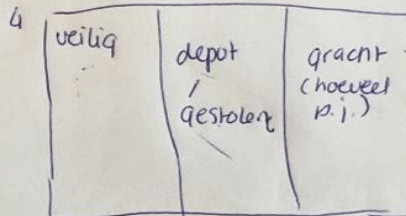 4
veilig
depot
/
gestolen
gracht
(hoeveel
p.j.)